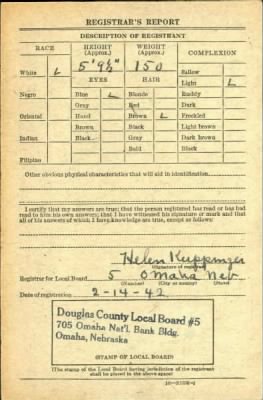 REGISTRAR'S REPORT
DESCRIPTION OF REGISTRANT
RACE HEIGHT (Approx.) WEIGHT (Approx.) COMPLEXION
5' 9½" 150 Sallow
White ✓ EYES HAIR Light ✓
Negro Blue ✓ Blonde Ruddy
Gray Red Dark
Oriental Hazel Brown ✓ Freckled
Brown Black Light brown
Indian Black Gray Dark brown
Bald Black
Filipino
Other obvious physical characteristics that will aid in identification
I certify that my answers are true; that the person registered has read or has had
read to him his own answers; that I have witnessed his signature or mark and that
all of his answers of which I have knowledge are true, except as follows:
Helen
(Signature of registrar)
Registrar for Local Board 5 Omaha Neb
(Number) (City or county) (State)
Date of registration 2-14-42
Douglas County Local Board #5
705 Omaha Nat'l. Bank Bldg.
Omaha, Nebraska
(STAMP OF LOCAL BOARD)
(The stamp of the Local Board having jurisdiction of the registrant
shall be placed in the above space)